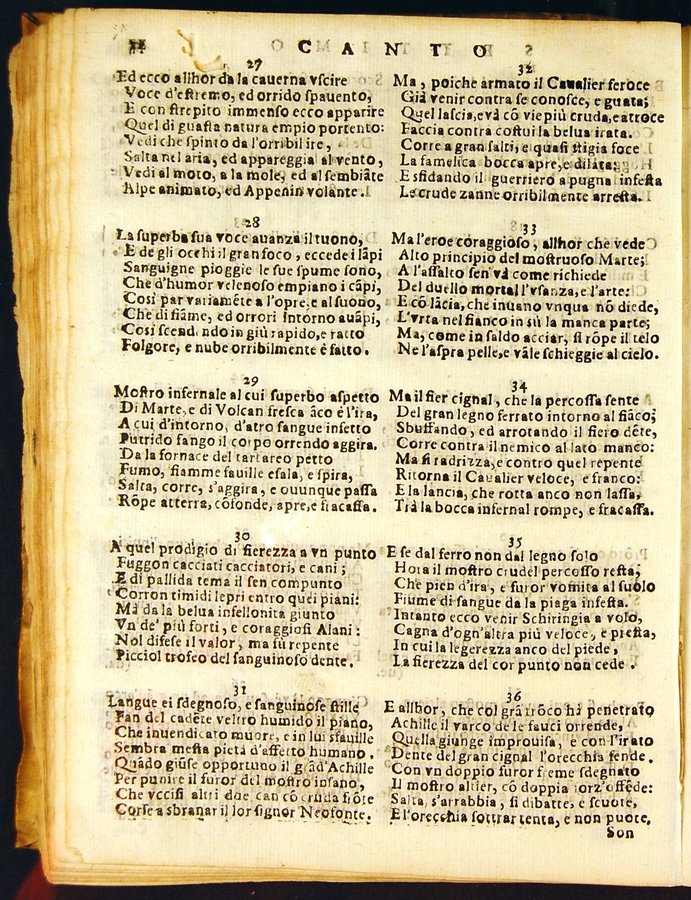 CANTO
27
Ed ecco allhor da la cauerna vscire
Voce d'estremo, ed orrido spauento,
E con strepito immenso ecco apparire
Quel di guasta natura empio portento:
Vedi che spinto da l'orribil ire,
Salta nel aria, ed appareggia al vento,
Vedi al moto, a la mole, ed al sembiãte
Alpe animato, ed Appenin volante.
28
La superba sua voce auanza il tuono,
E de gli occhi il gran foco, eccede i lãpi
Sanguigne pioggie le sue spume sono,
Che d'humor velenoso empiano i cãpi,
Cosi par variamẽte a l'opre, e al suono,
Che di fiãme, ed orrori intorno auãpi,
Cosi scendendo in giù rapido, e ratto
Folgore, e nube orribilmente è fatto.
29
Mostro infernale al cui superbo aspetto
Di Marte, e di Volcan fresca ãco è l'ira,
A cui d'intorno, d'atro sangue infetto
Putrido fango il corpo orrendo aggira.
Da la fornace del tartareo petto
Fumo, fiamme fauille esala, e spira,
Salta, corre, s'aggira, e ouunque passa
Rõpe atterra, cõfonde, apre, e fracassa.
30
A quel prodigio di fierezza a vn punto
Fuggon cacciati cacciatori, e cani;
E di pallida tema il sen compunto
Corron timidi lepri entro quei piani:
Ma da la belua infellonita giunto
Vn de' più forti, e coraggiosi Alani:
Nol difese il valor, ma fù repente
Picciol trofeo del sanguinoso dente.
31
Langue ei sdegnoso, e sanguinose stille
Fan del cadẽte veltro humido il piano,
Che inuendicato muore, e in lui sfauille
Sembra mesta pietà d'affetto humano.
Quãdo giũse opportuno il grã d'Achille
Per punire il furor del mostro insano,
Che vccisi altri due can cõ cruda frõte
Corse a sbranar il lor signor Neofonte.
32
Ma, poiche armato il Caualier feroce
Già venir contra se conosce, e guata;
Quel lascia, e và cõ vie più cruda, e atroce
Faccia contra costui la belua irata.
Corre a gran salti, e quasi stigia foce
La famelica bocca apre, e dilata:
E sfidando il guerriero a pugna infesta
Le crude zanne orribilmente arresta.
33
Ma l'eroe coraggioso, allhor che vede
Alto principio del mostruoso Marte;
A l'assalto sen và come richiede
Del duello mortal l'vsanza, e l'arte:
E cõ lãcia, che inuano vnqua nõ diede,
L'vrta nel fianco in sù la manca parte;
Ma, come in saldo acciar, si rõpe il telo
Ne l'aspra pelle, e vãle schieggie al cielo.
34
Ma il fier cignal, che la percossa sente
Del gran legno ferrato intorno al fiãco;
Sbuffando, ed arrotando il fiero dẽte,
Corre contra il nemico al lato manco:
Ma si radrizza, e contro quel repente
Ritorna il Caualier veloce, e franco:
E la lancia, che rotta anco non lassa,
Trà la bocca infernal rompe, e fracassa.
35
E se dal ferro non dal legno solo
Hora il mostro crudel percosso resta;
Che pien d'ira, e furor vomita al suolo
Fiume di sangue da la piaga infesta.
Intanto ecco venir Schiringia a volo,
Cagna d'ogn'altra più veloce, e presta,
In cui la legerezza anco del piede,
La fierezza del cor punto non cede.
36
E allhor, che col grã trõco hà penetrato
Achille il varco de le fauci orrende,
Quella giunge improuisa, e con l'irato
Dente del gran cignal l'orecchia fende.
Con vn doppio furor fieme sdegnato
Il mostro altier, cõ doppia forz'offẽde:
Salta, s'arrabbia, si dibatte, e scuote,
E l'orecchia sottrar tenta, e non puote.
Son